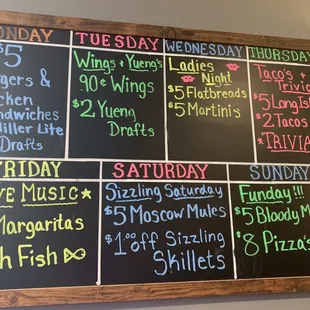 ONDAY
$5
rgers &
cken
ndwiches
Miller Lite
Drafts
TUESDAY
Wings + Yueng's
90¢ Wings
$2 Yueng
Drafts
WEDNESDAY
Ladies
Night
$5 Flatbreads
$5 Martini's
THURSDAY
Taco's +
Trivia
$5 Long Isl
$2 Tacos
*TRIVIA
FRIDAY
VE MUSIC
Margaritas
h Fish
SATURDAY
Sizzling Saturday
$5 Moscow Mules
$1.00 off Sizzling
Skillets
SUNDAY
Funday!!!
$5 Bloody M
$8 Pizza's